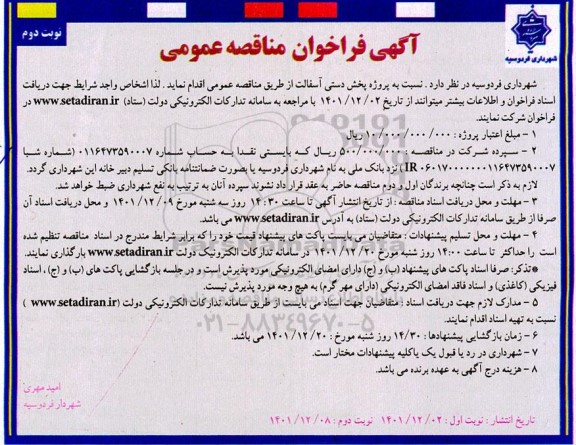 نوبت دوم
شهرداری فردوسیه
آگهی فراخوان مناقصه عمومی
شهرداری فردوسیه در نظر دارد . نسبت به پروژه پخش دستی آسفالت از طریق مناقصه عمومی اقدام نماید . لذا اشخاص واجد شرایط جهت دریافت
اسناد فراخوان و اطلاعات بیشتر میتوانند از تاریخ ۱۴۰۱/۱۲/۰۲ با مراجعه به سامانه تدارکات الکترونیکی دولت (ستاد) www.setadiran.ir در
فراخوان شرکت نمایند.
۱ - مبلغ اعتبار پروژه : ۱۰/۰۰۰/۰۰۰/۰۰۰ ریال
۲ - سپرده شرکت در مناقصه : ۵۰۰/۰۰۰/۰۰۰ ریال که بایستی نقدا به حساب شماره ۰۱۱۶۴۷۳۵۹۰۰۰۷ (شماره شبا
IR ۰۶۰۱۷۰۰۰۰۰۰۰۱۱۶۴۷۳۵۹۰۰۰۷) نزد بانک ملی به نام شهرداری فردوسیه یا بصورت ضمانتنامه بانکی تسلیم دبیر خانه این شهرداری گردد.
لازم به ذکر است چنانچه برندگان اول و دوم مناقصه حاضر به عقد قرار داد نشوند سپرده آنان به ترتیب به نفع شهرداری ضبط خواهد شد.
۳ - مهلت و محل دریافت اسناد مناقصه : از تاریخ انتشار آگهی تا ساعت ۱۴:۳۰ روز سه شنبه مورخ ۱۴۰۱/۱۲/۰۹ و محل دریافت اسناد آن
صرفا از طریق سامانه تدارکات الکترونیکی دولت (ستاد) به آدرس www.setadiran.ir می باشد.
۴ - مهلت و محل تسلیم پیشنهادات : متقاضیان می بایست پاکت های پیشنهاد قیمت خود را که برابر شرایط مندرج در اسناد مناقصه تنظیم شده
است را حداکثر تا ساعت ۱۴:۰۰ روز شنبه مورخ ۱۴۰۱/۱۲/۲۰ در سامانه تدارکات الکترونیک دولت www.setadiran.ir بارگذاری نمایند.
*تذکر: صرفا اسناد پاکت های پیشنهاد (ب) و (ج) دارای امضای الکترونیکی مورد پذیرش است و در جلسه بازگشایی پاکت های (ب) و (ج) ، اسناد
فیزیکی (کاغذی) و اسناد فاقد امضای الکترونیکی (دارای مهر گرم) به هیچ وجه مورد پذیرش نیست.
۵ - مدارک لازم جهت دریافت اسناد : متقاضیان جهت اسناد می بایست از طریق سامانه تدارکات الکترونیکی دولت (www.setadiran.ir )
نسبت به تهیه اسناد اقدام نمایند.
۶ - زمان بازگشایی پیشنهادها : ۱۴/۳۰ روز شنبه مورخ : ۱۴۰۱/۱۲/۲۰ می باشد.
۷ - شهرداری در رد یا قبول یک یاکلیه پیشنهادات مختار است.
۸ - هزینه درج آگهی به عهده برنده می باشد.
امید مهری
شهردار فردوسیه
تاریخ انتشار : نوبت اول : ۱۴۰۱/۱۲/۰۲ نوبت دوم : ۱۴۰۱/۱۲/۰۸
۰۲۱-۸۸۳۴۹۶۷۰-۵